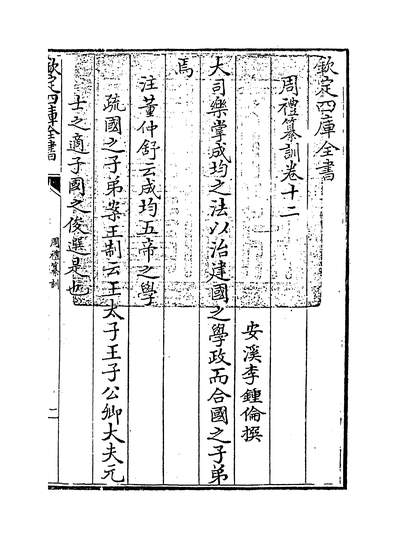 欽定四庫全書
周禮纂訓卷十二
安溪李鍾倫撰
大司樂掌成均之法以治建國之學政而合國之子弟
焉
注董仲舒云成均五帝之學
疏國之子弟案王制云王太子王子公卿大夫元
士之適子國之俊選是也
欽定四庫全書
周禮纂訓